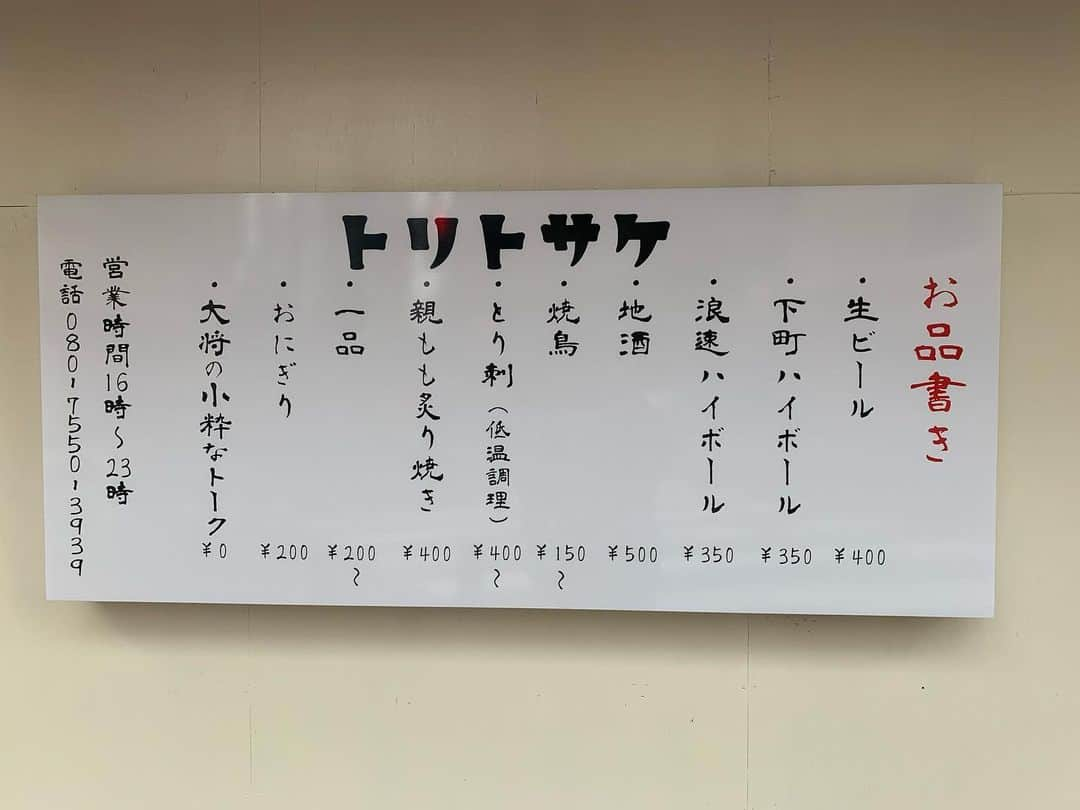 トリトサケ
お品書き
・生ビール ¥400
・下町ハイボール ¥350
・浪速ハイボール ¥350
・地酒 ¥500
・焼鳥 ¥150〜
・とり刺(低温調理) ¥400〜
・親もも炙り焼き ¥400
・一品 ¥200〜
・おにぎり ¥200
・大将の小粋なトーク ¥0
営業時間16時〜23時
電話080-7550-3939